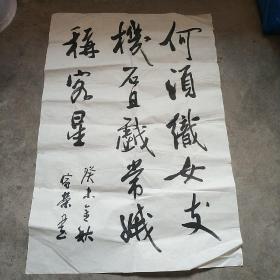 何須織女支
機石且戲常娥
稱客星
癸未金秋